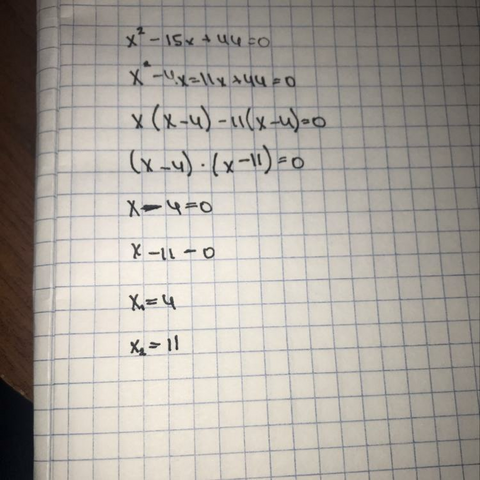 x² - 15x + 44 = 0
x² - 4x = 11x + 44 = 0
x (x - 4) - 11 (x - 4) = 0
(x - 4) · (x - 11) = 0
x - 4 = 0
x - 11 - 0
x₁ = 4
x₂ = 11